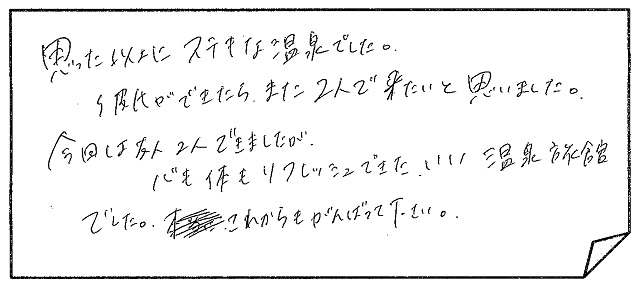 思った以上に ステキな温泉でした。
彼氏ができたら、また2人で来たいと思いました。
今回は友人2人できましたが、
心も体もリフレッシュできた、いい 温泉旅館
でした。これからもがんばって下さい。